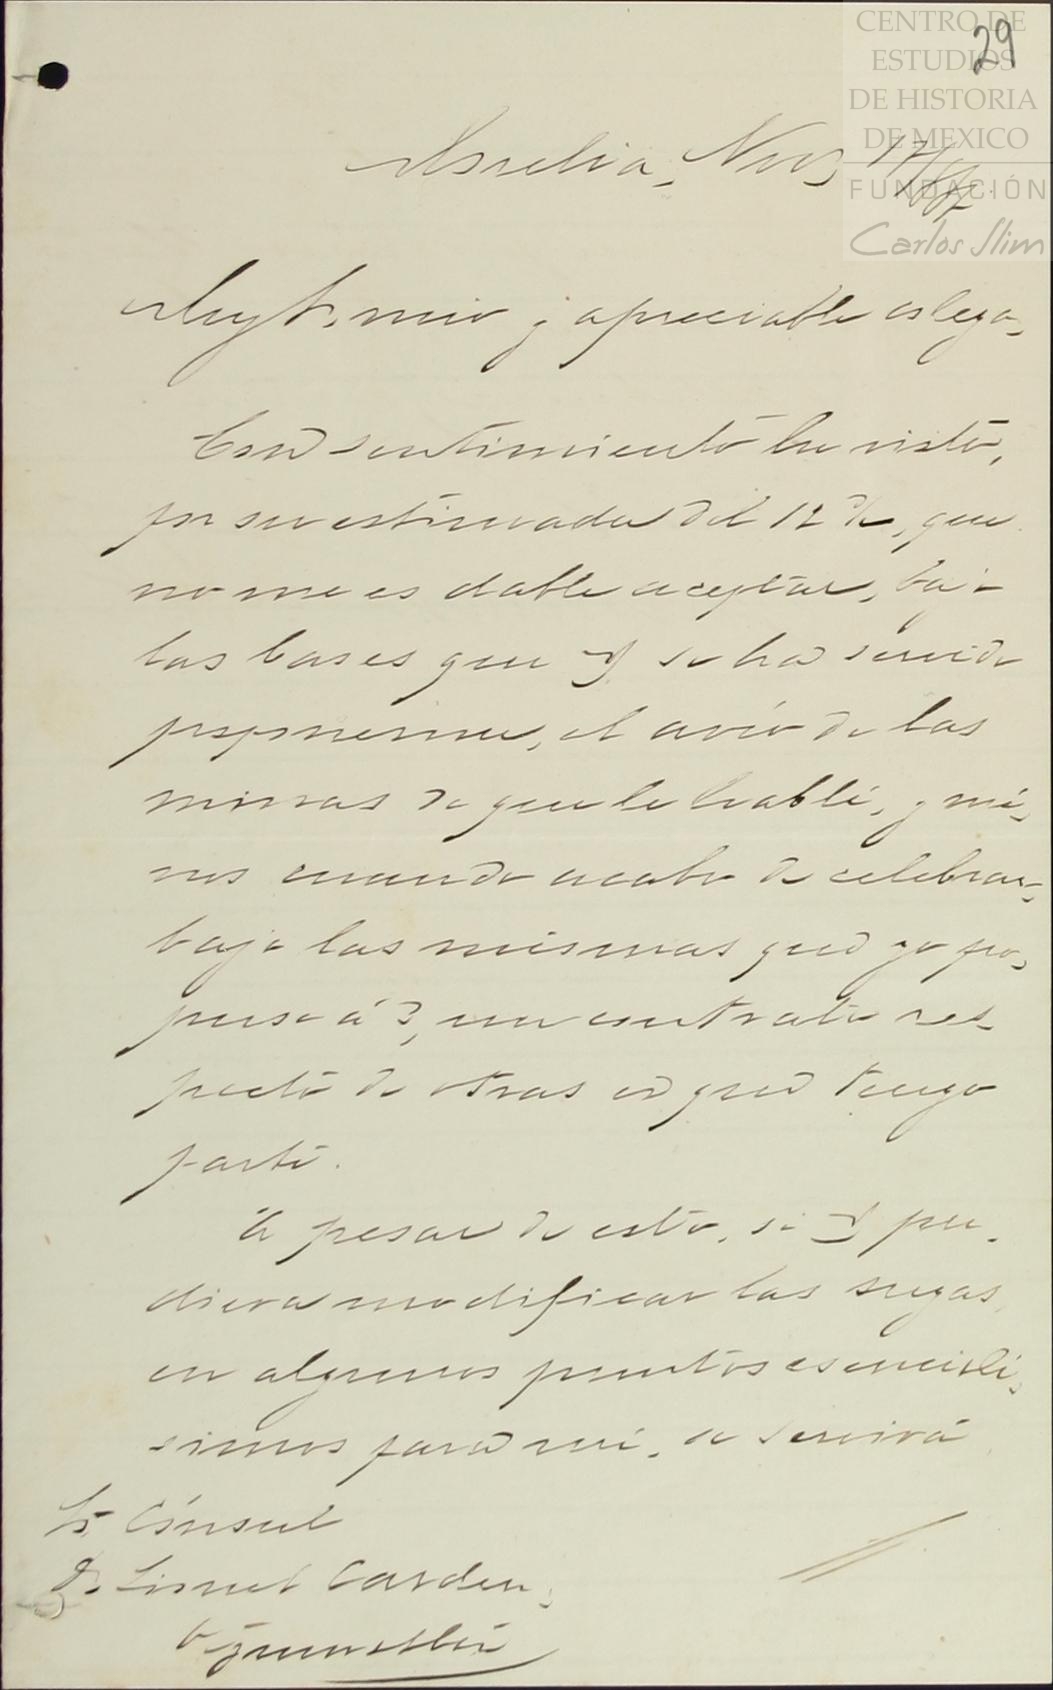 CENTRO DE
ESTUDIOS
DE HISTORIA
DE MEXICO
FUNDACIÓN
Carlos Slim
29
Morelia, Nov. 17/87.
Muy Sr. mio y apreciable colega,
Con sentimiento he visto,
por su estimada del 12 %, que
no me es dable aceptar, bajo
las bases que V se ha servido
proponerme, el avío de las
minas de que le hablé, y mé-
nos cuando acabo de celebrar,
bajo las mismas que yo pro-
puse á V, un contrato res-
pecto de otras en que tengo
parte.
A pesar de esto, si V pu-
diera modificar las suyas,
en algunos puntos esenciali-
simos para mi, se servirá
Sr. Cónsul
D. Lionel Carden,